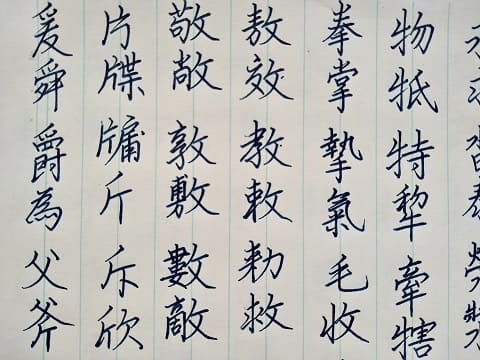 物牴特犂牽犗
拳掌摯氣毛收
敖效教敕勑救
敬敞敦敷數敵
片牒牖斤斥欣
爰舜爵為父斧